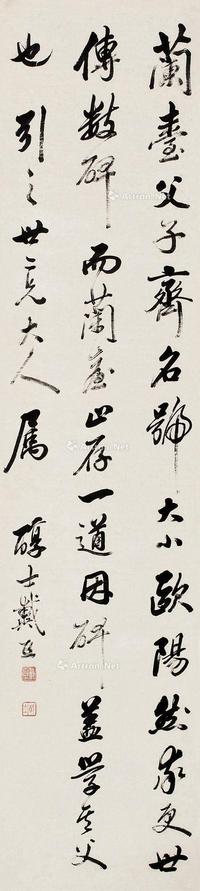 蘭臺父子齊名號大小歐陽然率更世
傳數碑而蘭臺止存一道因碑蓋學其父
也引之世二兄大人屬
醇士戴熙